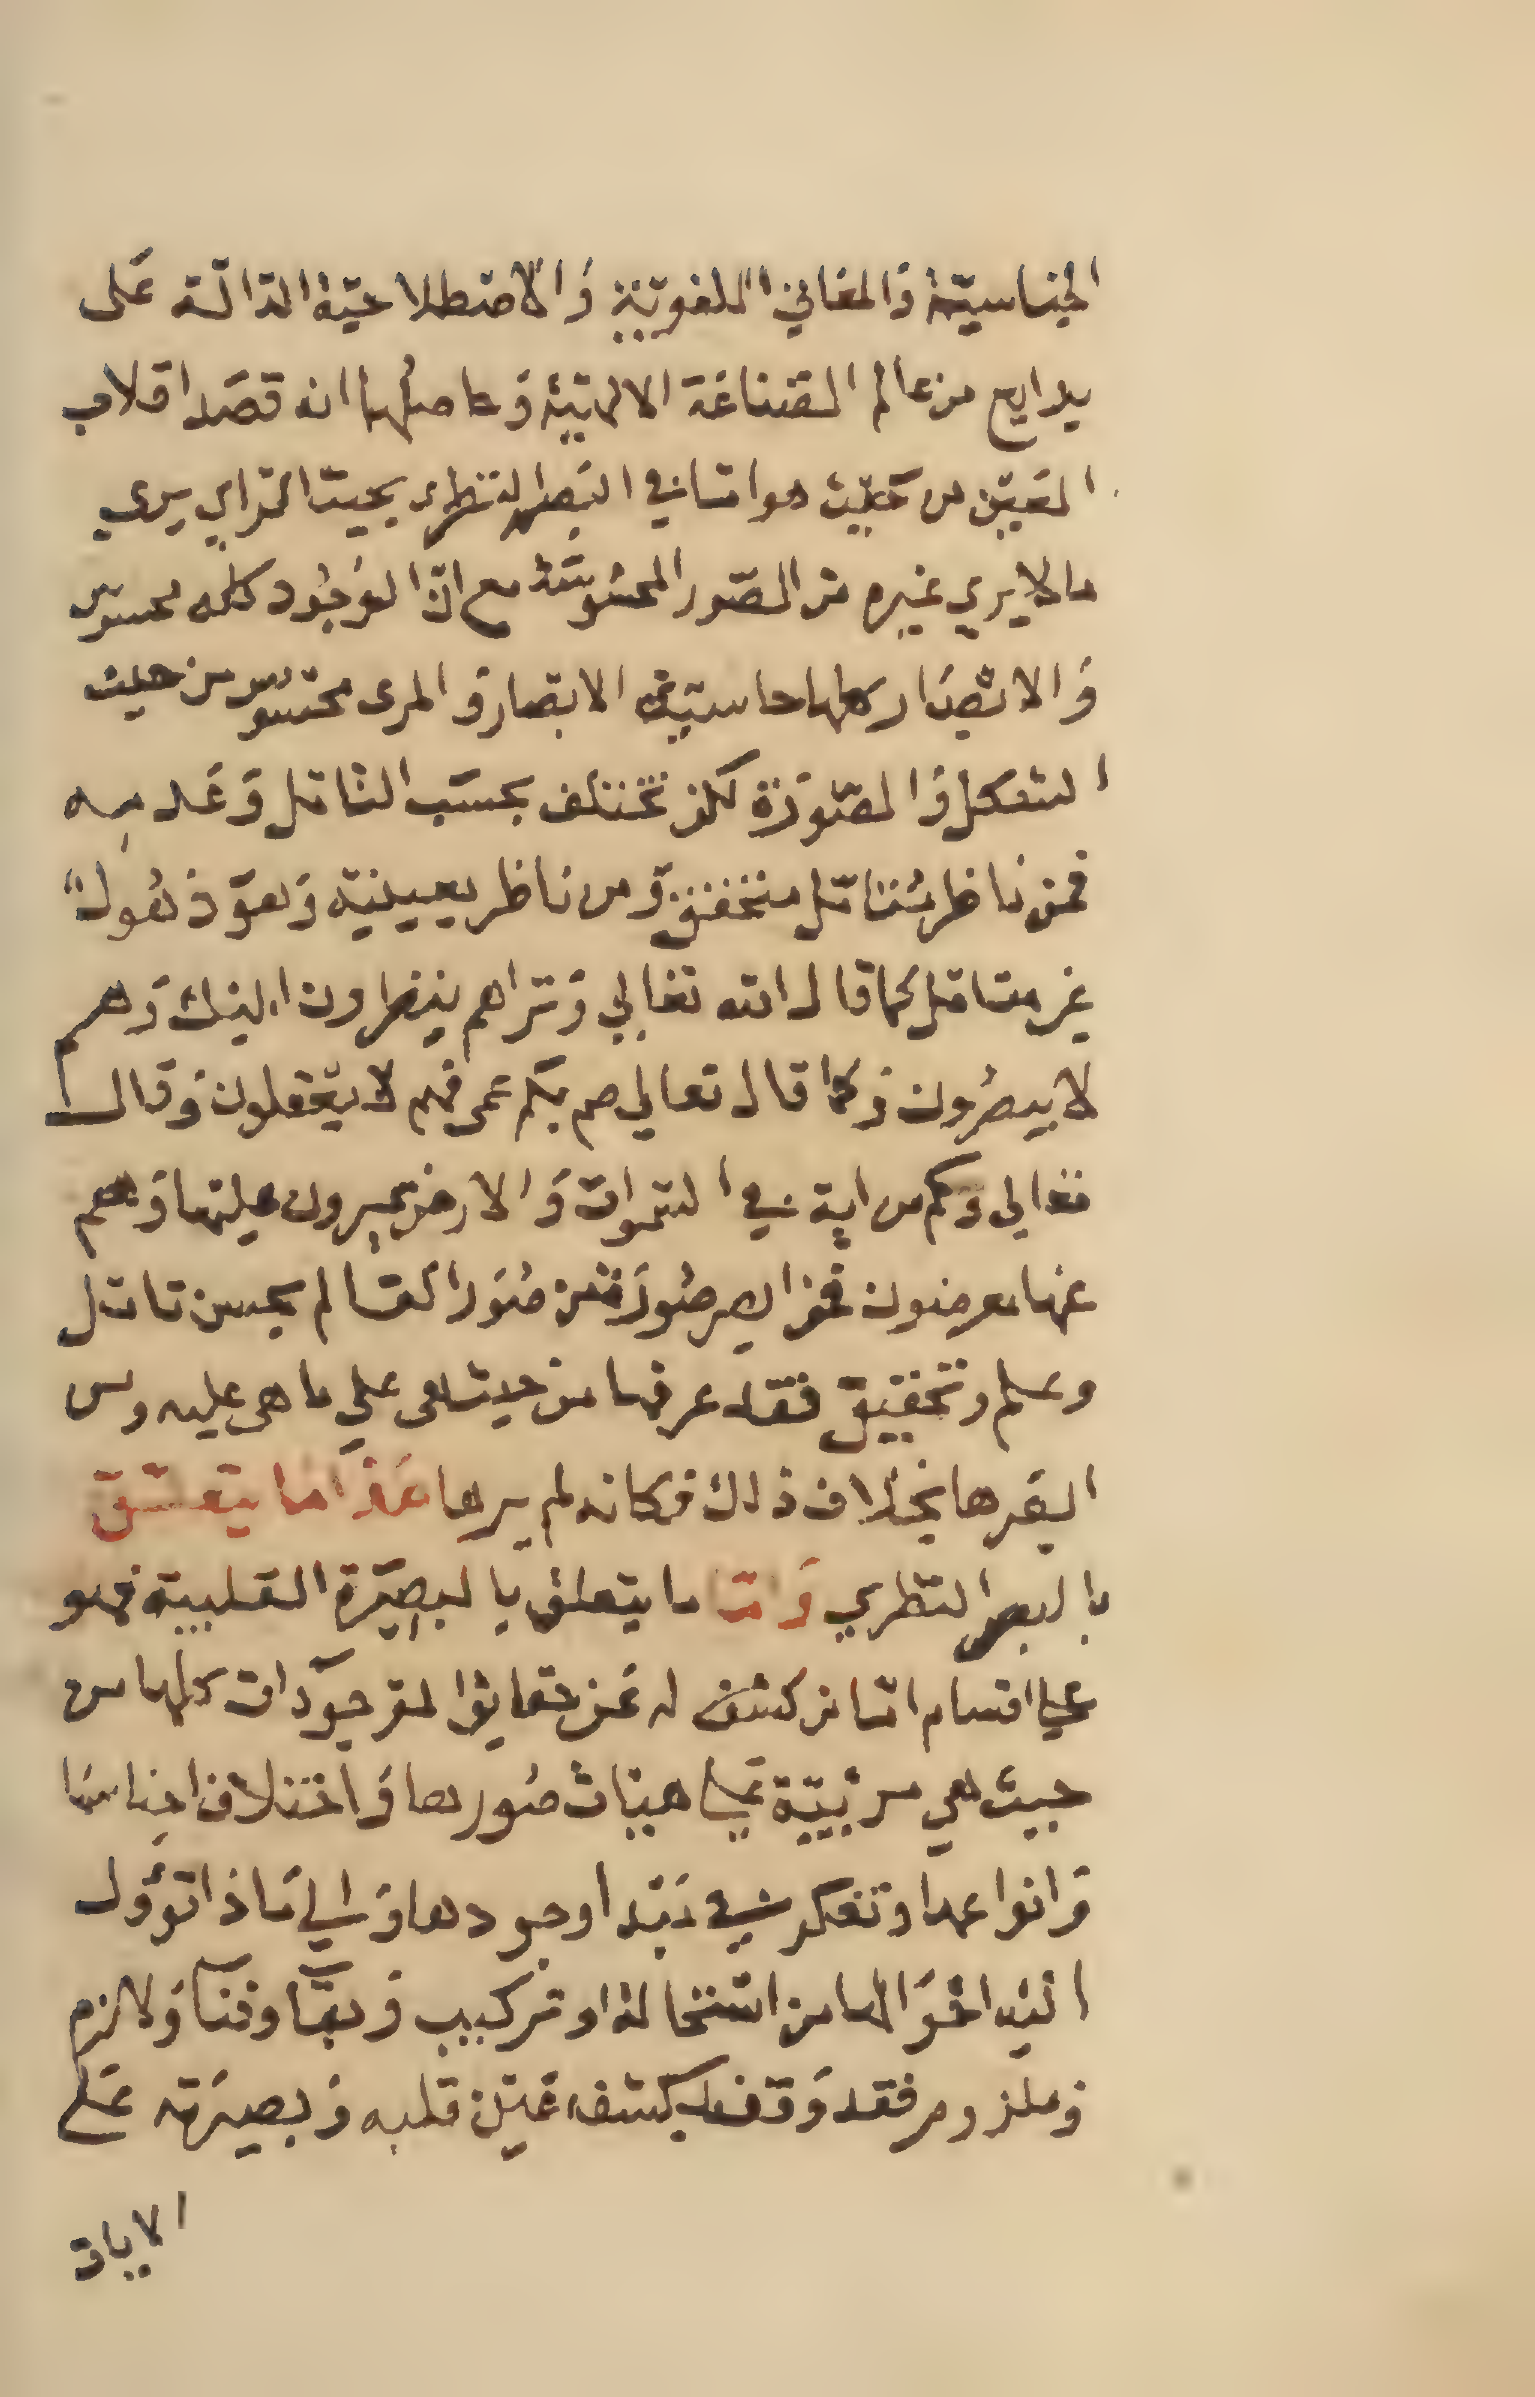 الجناسية والمعاني اللغوية والاصطلاحية الدالة على
بدايع من عالم الصناعة الالهية وحاصلها انه قصد اقلاب
العين من حيث هو اما في البصر النظري بحيث الراي يري
مالا يري غيره من الصور المحسوسة مع ان الوجود كله محسوس
والابصار كلها حاسية الابصار والمرى محسوس من حيث
التشكل والصورة لكن تختلف بحسب التامل وعدمه
فمن ناظر متامل متحقق ومن ناظر بعينيه وهو ذهول
غير متامل كما قال الله تعالي وتراهم ينظرون اليك وهم
لا يبصرون وكما قال تعالي صم بكم عمى فهم لا يعقلون وقال
تعالي وكم من اية في السموات والارض يمرون عليها وهم
عنها معرضون فمن ابصر صورة من صور العالم بحسن تامل
وعلم وتحقيق فقد عرفها من حيث هى علي ما هى عليه ومن
ابصرها بخلاف ذلك فكانه لم يرها هذا ما يتعلق
بالبصر النظري واما ما يتعلق بالبصيرة القلبية فهو
علي اقسام اما من كشف له عن حقايق الموجودات كلها من
حيث هي مرئية علي هيئات صورها واختلاف اجناسها
وانواعها وتفكر في مبدا وجودها والي ماذا تؤول
اليه احوالها من استحالة او تركيب وبقآ وفنآ ولازم
وملزوم فقد وقف بكشف عين قلبه وبصيرته علي
الايات